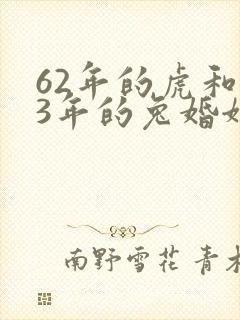 62年的虎和
3年的兔婚
南野雪花 青木